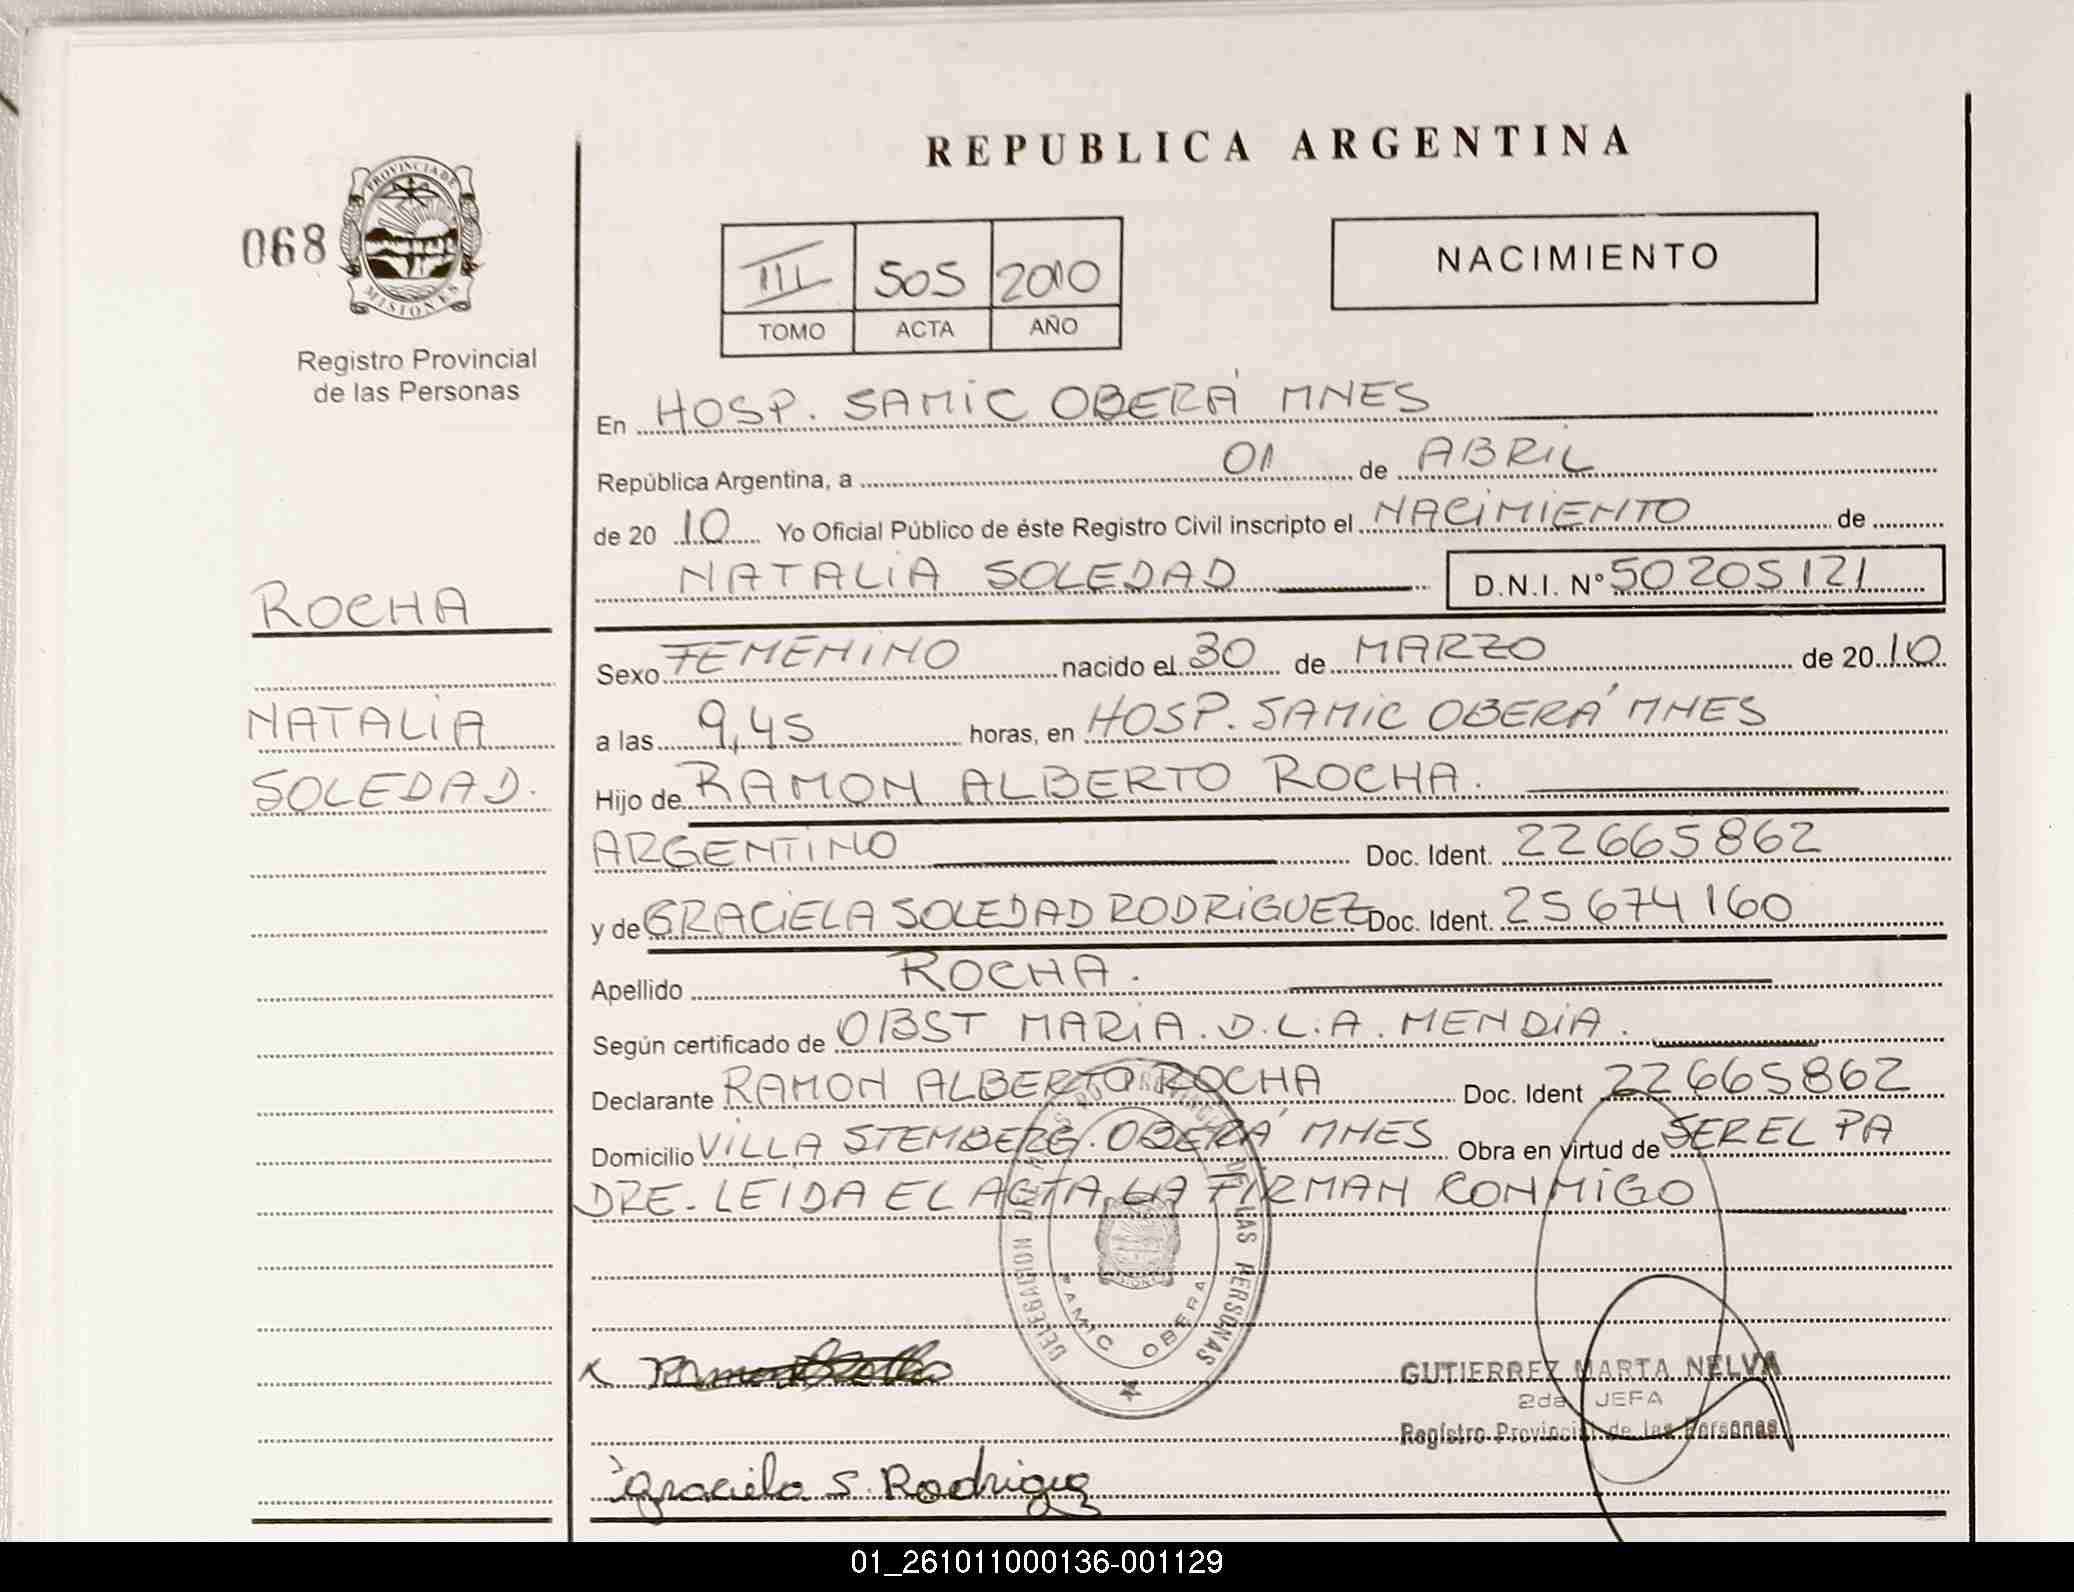 REPUBLICA ARGENTINA
068
PROVINCIA DE
MISIONES
Registro Provincial
de las Personas
III 505 2010
TOMO ACTA AÑO
NACIMIENTO
En HOSP. SAMIC OBERÁ MNES
República Argentina, a 01 de ABRIL
de 20 10 Yo Oficial Público de éste Registro Civil inscripto el NACIMIENTO de
NATALIA SOLEDAD D.N.I. N° 50205121
ROCHA
NATALIA
SOLEDAD.
Sexo FEMENINO nacido el 30 de MARZO de 20 10
a las 9,45 horas, en HOSP. SAMIC OBERÁ MNES
Hijo de RAMON ALBERTO ROCHA.
ARGENTINO Doc. Ident. 22665862
y de GRACIELA SOLEDAD RODRIGUEZ Doc. Ident. 25674160
Apellido ROCHA.
Según certificado de OBST MARIA. D.L.A. MENDIA.
Declarante RAMON ALBERTO ROCHA Doc. Ident 22665862
Domicilio VILLA STEMBERG. OBERÁ MNES Obra en virtud de SER EL PA
DRE. LEIDA EL ACTA LA FIRMAN CONMIGO
DELEGACION DEL REGISTRO PROVINCIAL DE LAS PERSONAS
SAMIC OBERA
GUTIERREZ MARTA NELVA
2da JEFA
Registro Provincial de las Personas
Graciela S. Rodriguez
01_261011000136-001129